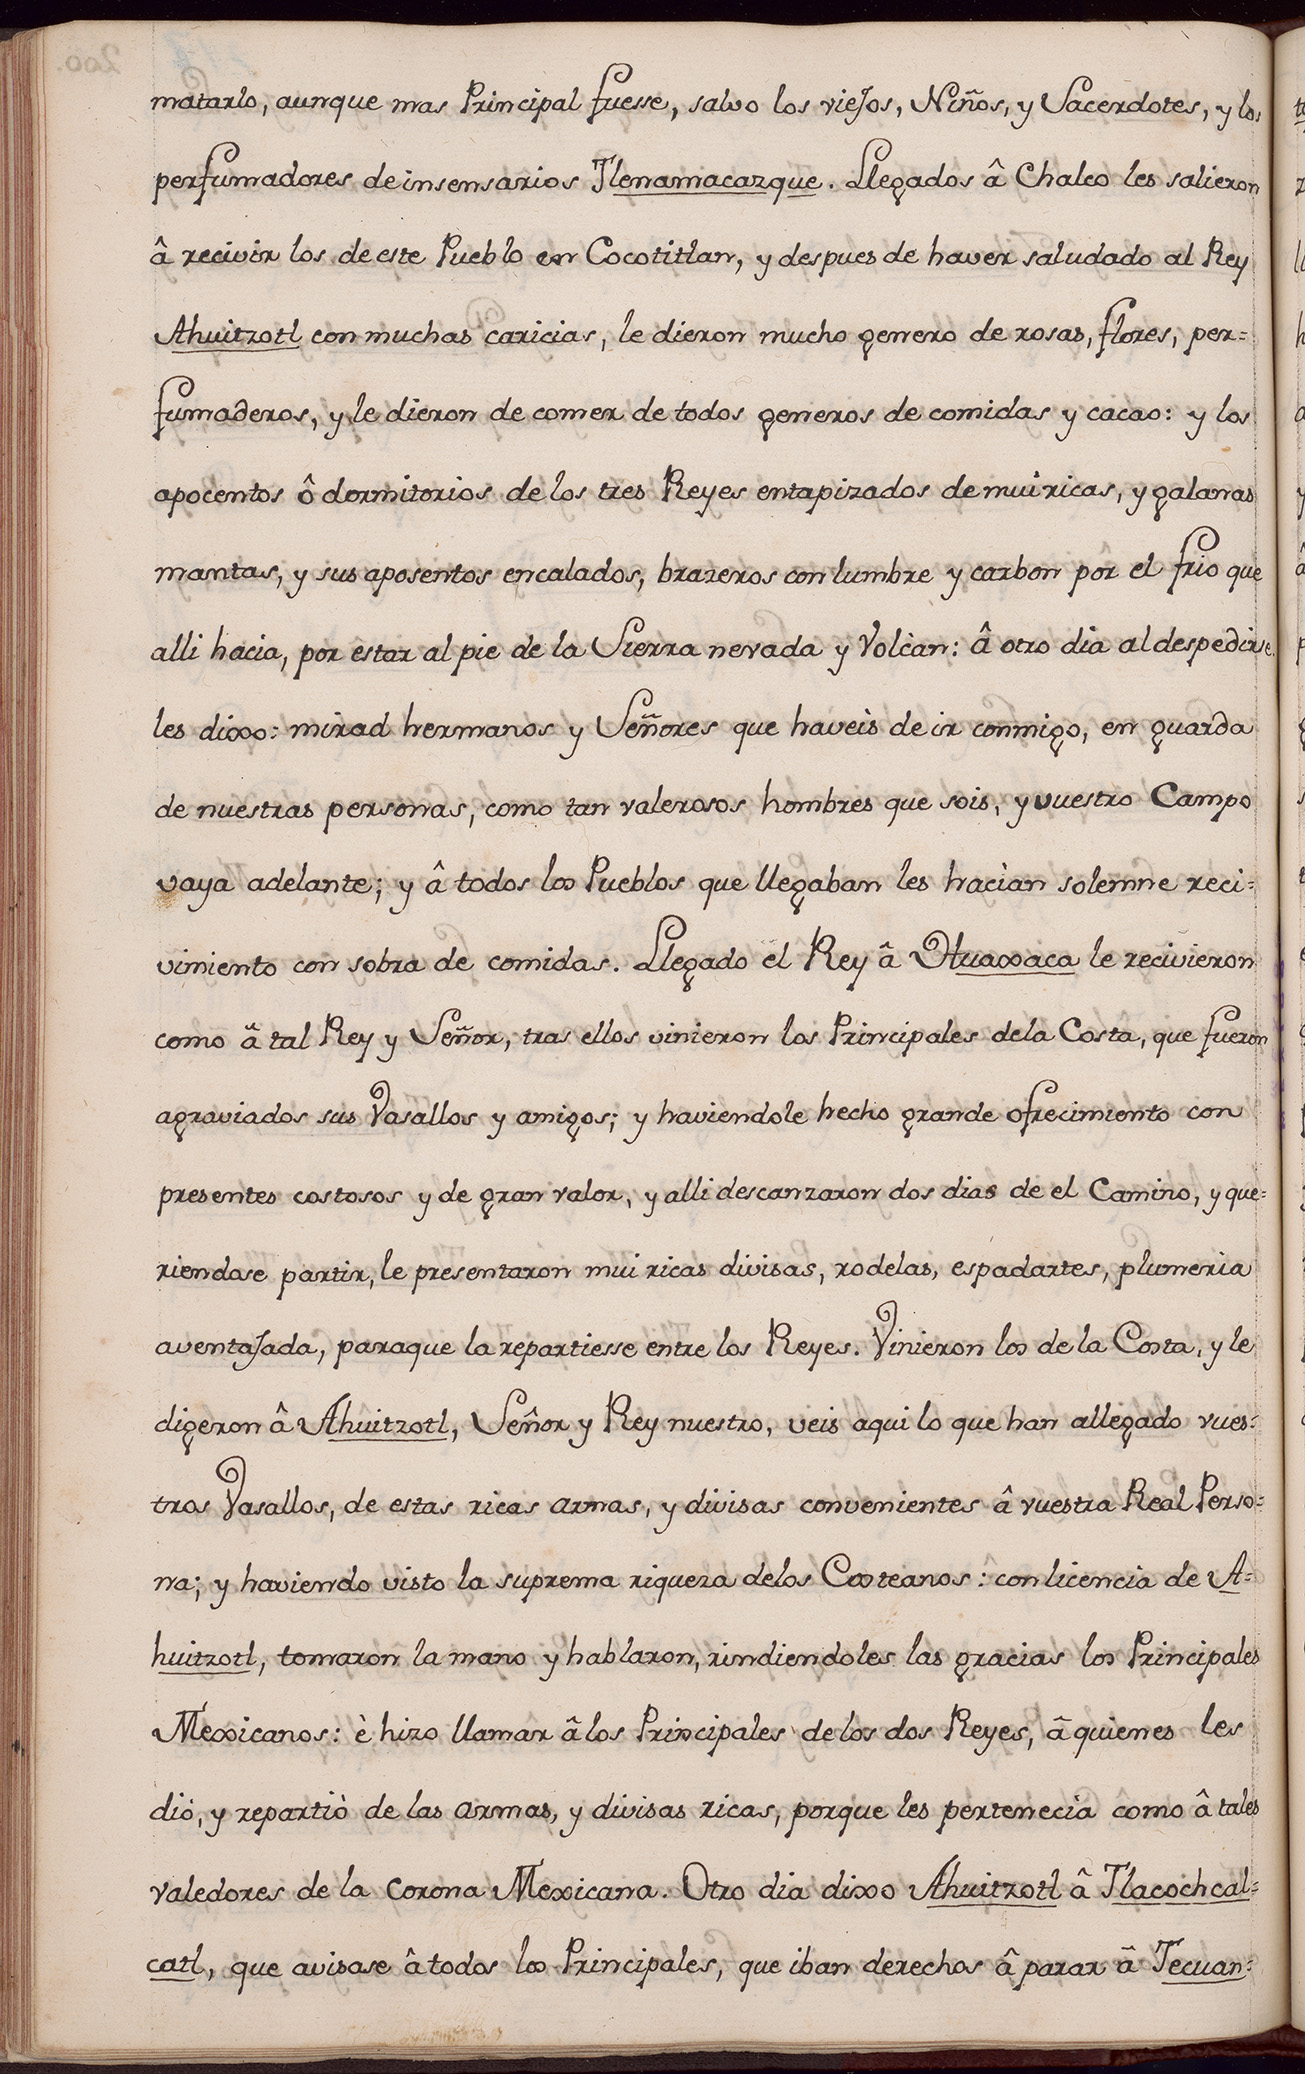 matarlo, aunque mas Principal fuesse, salvo los viejos, Niños, y Sacerdotes, y los
perfumadores de insensarios Tlenamacazque. Llegados â Chalco les salieron
â recivir los de este Pueblo en Cocotitlan, y despues de haver saludado al Rey
Ahuitzotl con muchas caricias, le dieron mucho genero de rosas, flores, per=
fumaderos, y le dieron de comer de todos generos de comidas y cacao: y los
apocentos ô dormitorios de los tres Reyes entapizados de mui ricas, y galanas
mantas, y sus aposentos encalados, brazeros con lumbre y carbon pòr el frio que
alli hacia, por estar al pie de la Sierra nevada y Volcàn: â otro dia al despedirse
les dixo: mirad hermanos y Señores que haveis de ir conmigo, en guarda
de nuestras personas, como tan valerosos hombres que sois, y vuestro Campo
vaya adelante; y â todos los Pueblos que llegaban les hacian solemne reci=
vimiento con sobra de comidas. Llegado el Rey â Huaxaca le recivieron
como â tal Rey y Señor, tras ellos vinieron los Principales dela Costa, que fueron
agraviados sus Vasallos y amigos; y haviendole hecho grande ofrecimiento con
presentes costosos y de gran valor, y alli descanzaron dos dias de el Camino, y que=
riendose partir, le presentaron mui ricas divisas, rodelas, espadartes, plumeria
aventajada, paraque la repartiesse entre los Reyes. Vinieron los de la Costa, y le
digeron â Ahuitzotl, Señor y Rey nuestro, veis aqui lo que han allegado vues=
tros Vasallos, de estas ricas armas, y divisas convenientes â vuestra Real Perso=
na; y haviendo visto la suprema riqueza delos Costeanos: con licencia de A=
huitzotl, tomaron la mano y hablaron, rindiendoles las gracias los Principales
Mexicanos: è hizo llamar â los Principales de los dos Reyes, â quienes les
diò, y repartiò de las armas, y divisas ricas, porque les pertenecia como â tales
valedores de la Corona Mexicana. Otro dia dixo Ahuitzotl â Tlacochcal=
catl, que avisase â todos los Principales, que iban derechos â parar â Tecuan=